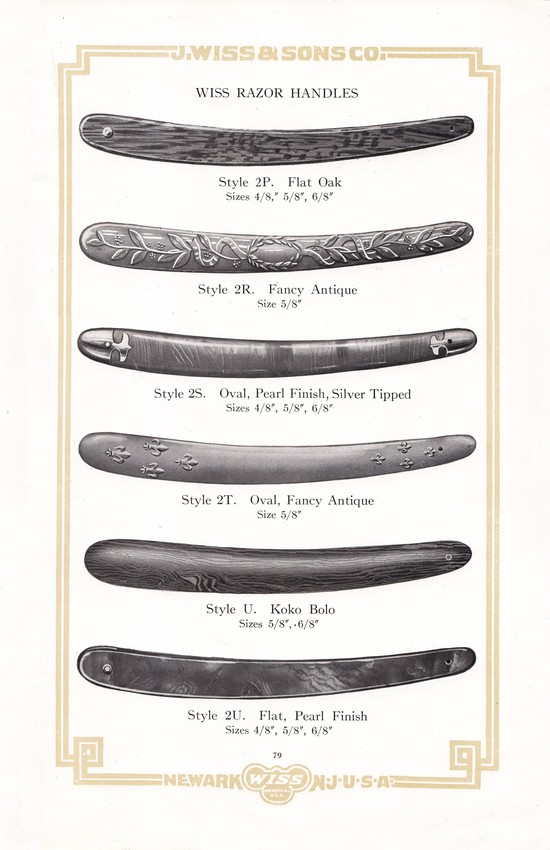 J. WISS & SONS CO.
WISS RAZOR HANDLES
Style 2P. Flat Oak
Sizes 4/8," 5/8", 6/8"
Style 2R. Fancy Antique
Size 5/8"
Style 2S. Oval, Pearl Finish, Silver Tipped
Sizes 4/8", 5/8", 6/8"
Style 2T. Oval, Fancy Antique
Size 5/8"
Style U. Koko Bolo
Sizes 5/8", 6/8"
Style 2U. Flat, Pearl Finish
Sizes 4/8", 5/8", 6/8"
79
NEWARK WISS N·J·U·S·A·